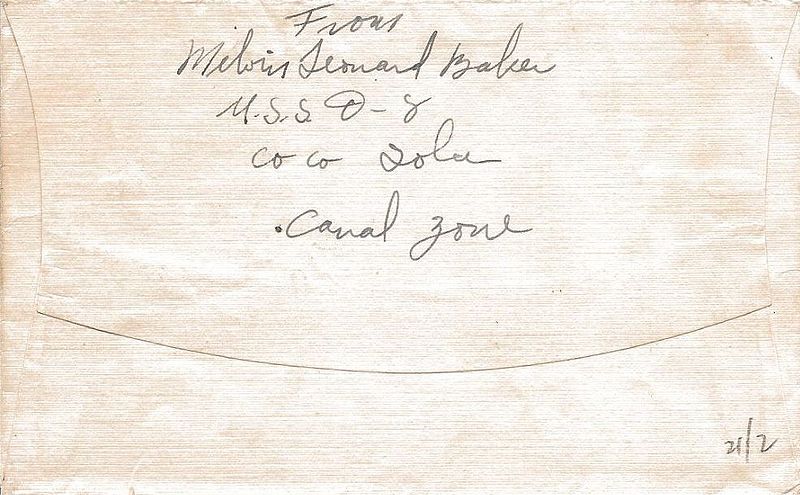 From
Melvin Leonard Baker
U.S.S. O-8
Coco Solo
.Canal Zone
21/2